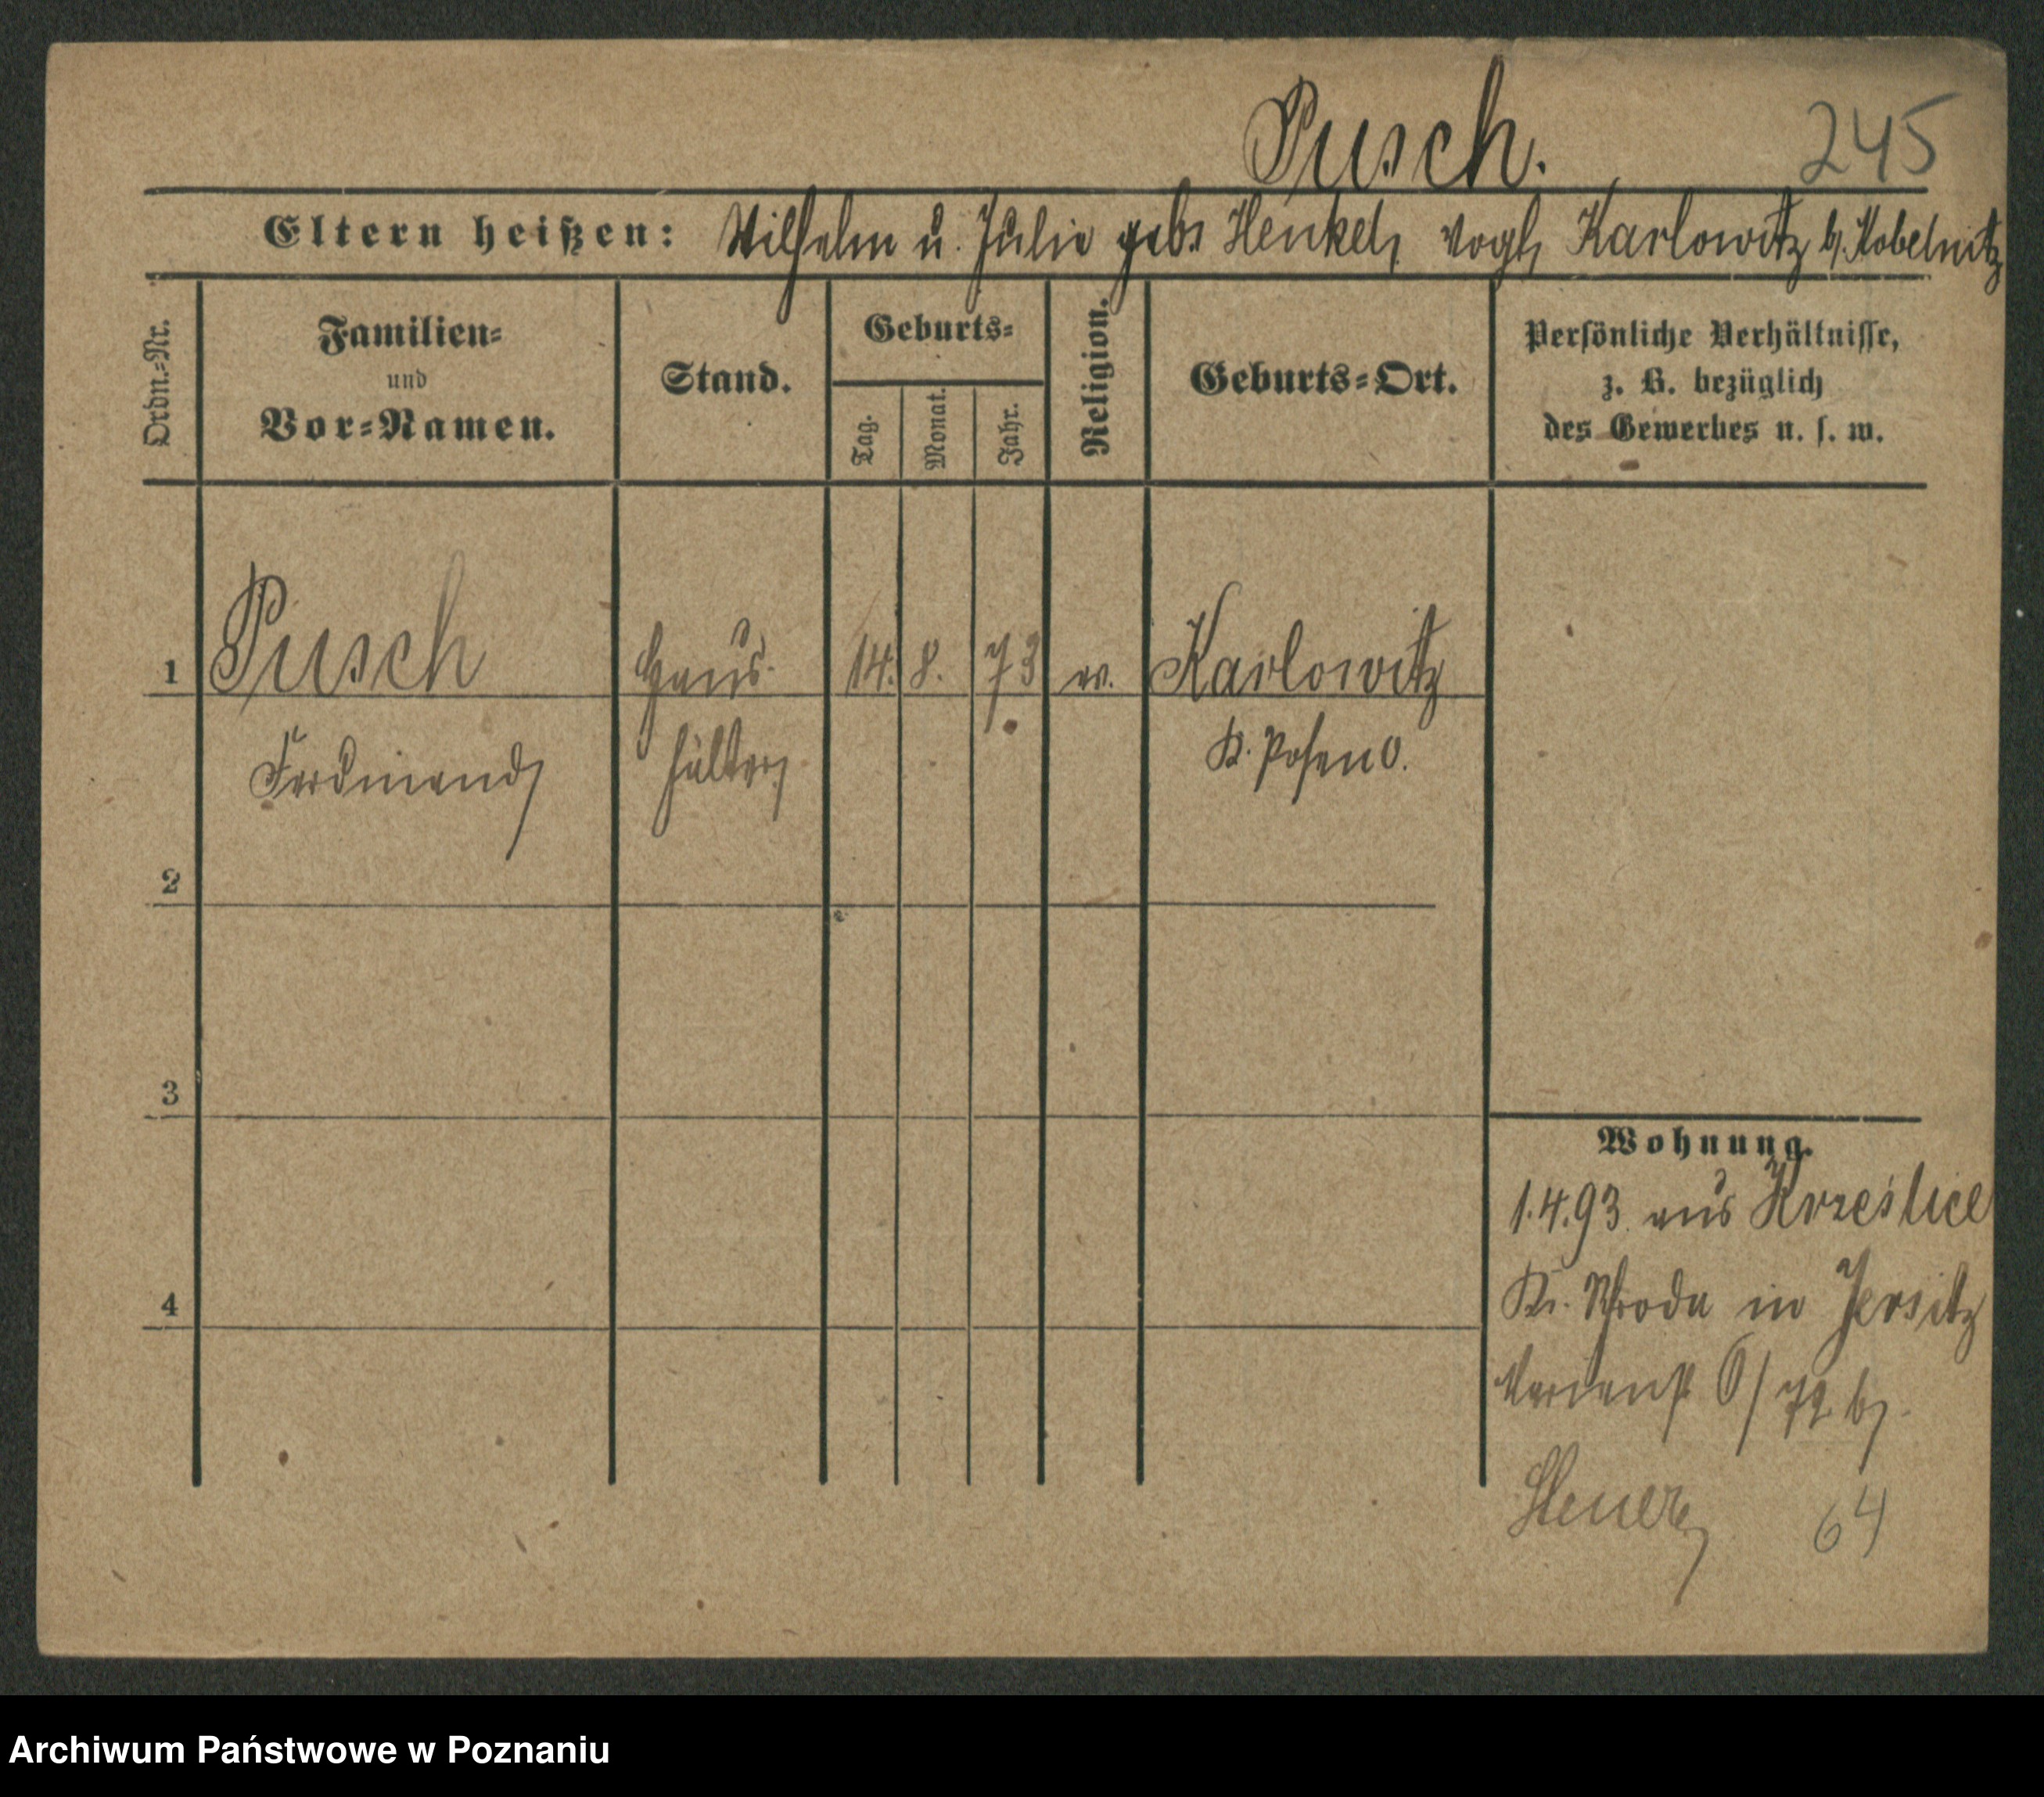 Pusch. 245
Eltern heißen: Wilhelm u. Julie geb. Henkel, Karlowitz b. Kobelnitz
Ordn.-Nr.
Familien-
und
Vor-Namen.
Stand.
Geburts-
Tag.
Monat.
Jahr.
Religion.
Geburts-Ort.
Persönliche Verhältnisse,
z. B. bezüglich
des Gewerbes u. s. w.
1 Pusch Haus- 14. 8. 73 ev. Karlowitz
Ferdinand hälter K. Posen O.
2
3
4
Wohnung.
1.4.93 aus Krzeslice
Kr. Schroda in Jersitz
6/72 b.
Steuer 64
Archiwum Państwowe w Poznaniu